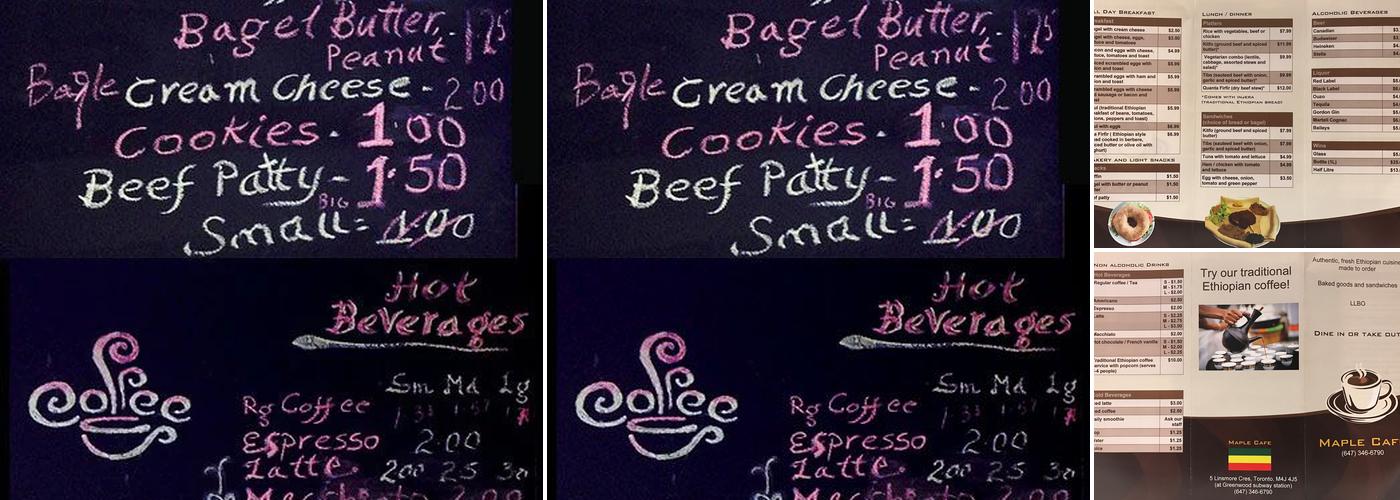 Bagel Butter, - 1.75
Peanut
Bagle Cream Cheese - 2.00
Cookies - 1.00
Beef Patty - 1.50
BIG
Small = 1.00
Hot
Beverages
Coffee
Sm Md Lg
Rg Coffee
Espresso 2.00
Latte 200 25 30
Bagel Butter, - 1.75
Peanut
Bagle Cream Cheese - 2.00
Cookies - 1.00
Beef Patty - 1.50
BIG
Small = 1.00
Hot
Beverages
Coffee
Sm Md Lg
Rg Coffee
Espresso 2.00
Latte 200 25 30
LL DAY BREAKFAST
eakfast
gel with cream cheese $2.50
gel with cheese, eggs,
uce and tomatoes
con and eggs with cheese, $4.99
matoes and toast
iced scrambled eggs with
on and toast
rambled eggs with ham and $5.99
on and toast
rambled eggs with cheese
d sausage or bacon and
ast
ul (traditional Ethiopian $5.99
eakfast of beans, tomatoes,
ions, peppers and toast)
ul with eggs $6.99
a Firfir ( Ethiopian style $6.99
ced cooked in berbere,
iced butter or olive oil with
ghurt)
AKERY AND LIGHT SNACKS
acks
ffin $1.50
gel with butter or peanut $1.50
tter
ef patty $1.50
LUNCH / DINNER
Platters
Rice with vegetables, beef or $7.99
chicken
Kitfo (ground beef and spiced $11.99
butter)*
Vegetarian combo (lentils, $9.99
cabbage, assorted stews and
salad)*
Tibs (sauteed beef with onion, $9.99
garlic and spiced butter)*
Quanta Firfir (dry beef stew)* $12.00
*COMES WITH INJERA
(TRADITIONAL ETHIOPIAN BREAD)
Sandwiches
(choice of bread or bagel)
Kitfo (ground beef and spiced $7.99
butter)
Tibs (sauteed beef with onion, $7.99
garlic and spiced butter)
Tuna with tomato and lettuce $4.99
Ham / chicken with tomato $4.99
and lettuce
Egg with cheese, onion, $3.50
tomato and green pepper
ALCOHOLIC BEVERAGES
Beer
Canadian $3.
Budweiser $3.
Heineken
Stella
Liquor
Red Label
Black Label
Ouzo
Tequila
Gordon Gin
Martell Cognac
Baileys
Wine
Glass
Bottle (1L)
Half Litre
NON ALCOHOLIC DRINKS
Hot Beverages
Regular coffee / Tea S - $1.50
M - $1.75
L - $2.00
Americano $2.50
Espresso $2.00
Latte S - $2.25
M - $2.75
L - $3.00
Macchiato $2.00
Hot chocolate / French vanille S - $1.50
M - $2.00
L - $2.25
Traditional Ethiopian coffee $10.00
ervice with popcorn (serves
-4 people)
old Beverages
ed latte $3.00
ed coffee $2.50
aily smoothie Ask our
staff
op $1.25
ater $1.25
uice $1.25
Try our traditional
Ethiopian coffee!
MAPLE CAFE
5 Linsmore Cres, Toronto, M4J 4J5
(at Greenwood subway station)
(647) 346-6790
Authentic, fresh Ethiopian cuisine
made to order
Baked goods and sandwiches
LLBO
DINE IN OR TAKE OUT
MAPLE CAF
(647) 346-6790